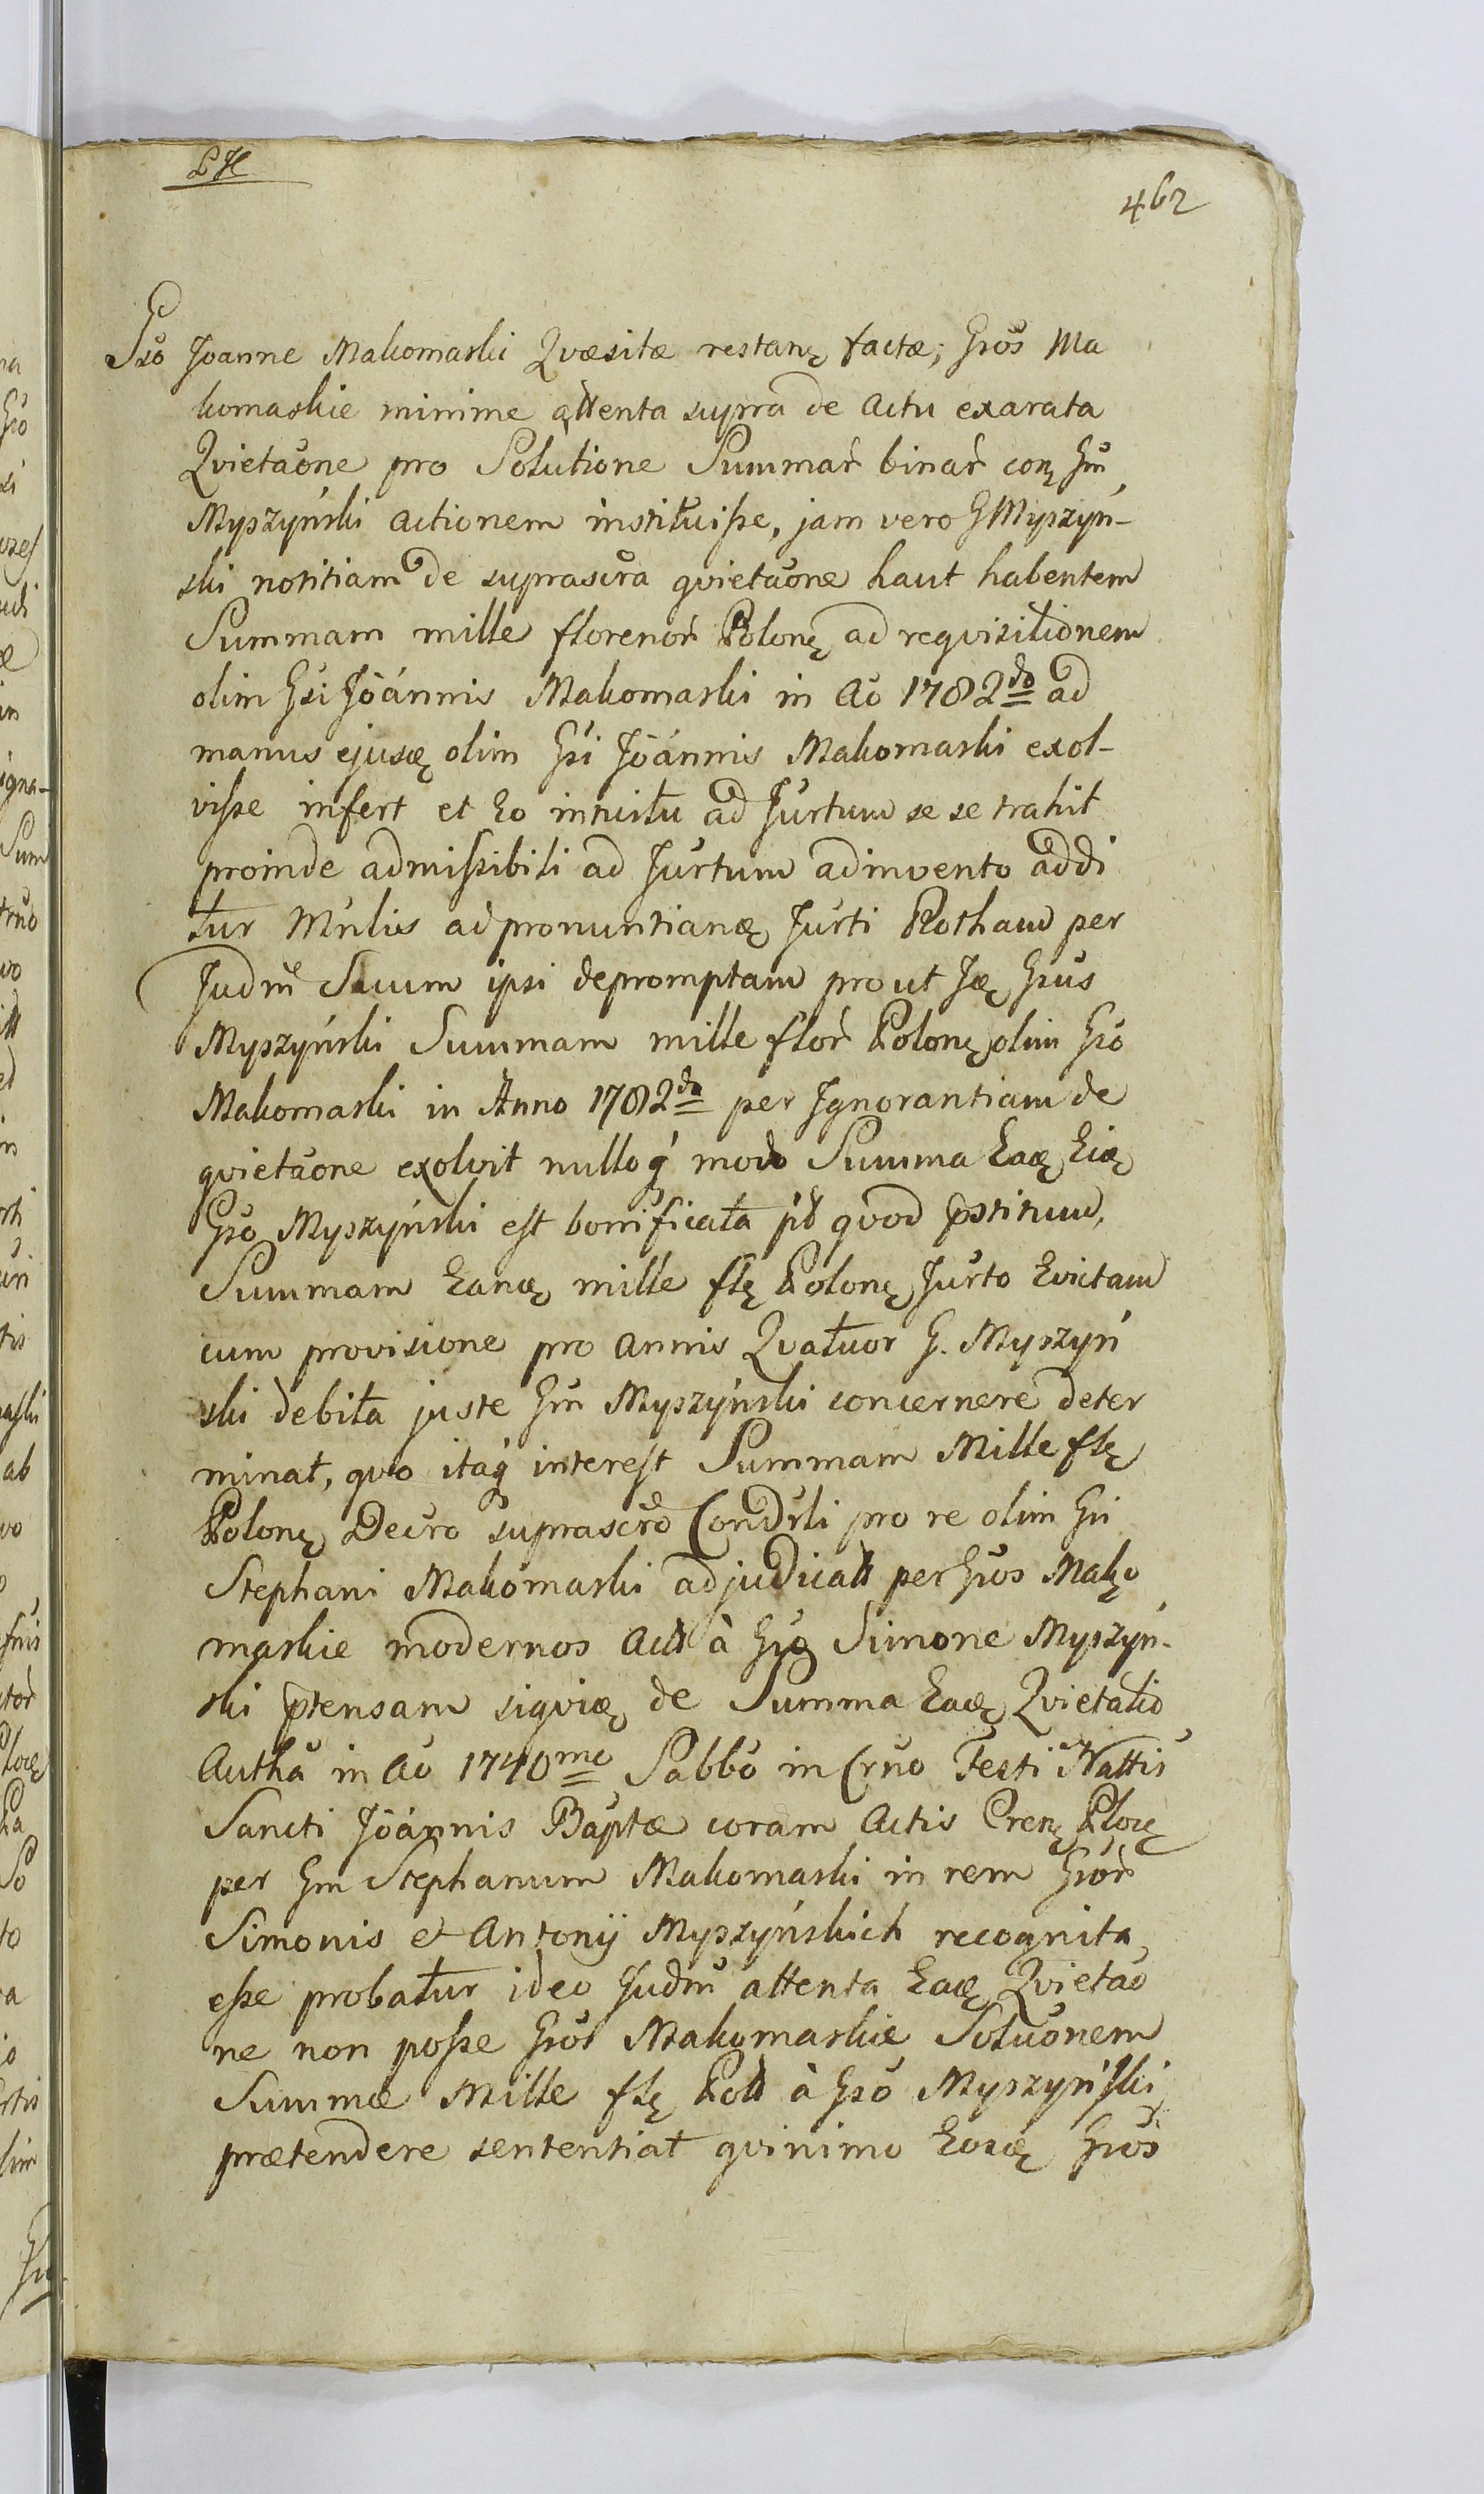 462
Gso Joanne Makomaski Qvæsitæ restanę factæ; Gsos Ma
komaskie minime attenta supra de actu exarata
Qvietaone pro Solutione Summar binar conę Gm
Myszyński actionem instituisse, jam vero G Myszyń-
ski notitiam de suprascra qvietaone haut habentem
Summam mille florenor Polonę ad reqvisitionem
olim Gsi Joánnis Makomaski in Ao 1782do ad
manus ejusę olim Gsi Joánnis Makomaski exol-
visse infert et Eo intuitu ad Jurtum se se trahit
proinde admissibili ad Jurtum adinvento addi
tur Mnlis ad pronuntianę Jurti Rotham per
Judm Suum ipsi depromptam prout Ję Gsus
Myszyński Summam mille flor Polonę olim Gso
Makomaski in Anno 1782do per Ignorantiam de
qvietaone exolvit nulloq modo Summa Eaę Eię
Gso Myszyński est bonificata pt qvod pstitum,
Summam Eanę mille flę Polonę Jurto Evictam
cum provisione pro annis Qvatuor G. Myszyń
ski debita juste Gm Myszyński concernere deter
minat, qvo itaq interest Summam Mille flę
Polonę Decro suprascro Condrli pro re olim Gsi
Stephani Makomaski adjudicatt per Gsos Mako
maskie modernos Actt à Gso Simone Myszyń-
ski ptensam siqvię de Summa Eaę Qvietatio
Autha in Ao 1740mo Sabbo in Crno Festi Nattis
Sancti Joánnis Baptæ coram Actis Crenę Plocę
per Gm Stephanum Makomaski in rem Gsor
Simonis et Antonij Myszyńskich recognita
esse probatur ideo Judm attenta Eaę Qvietao
ne non posse Gsos Makomaskie Soluonem
Summæ Mille flę Poll à Gso Myszyński
prætendere sententiat qvinimo Eosę Gsos